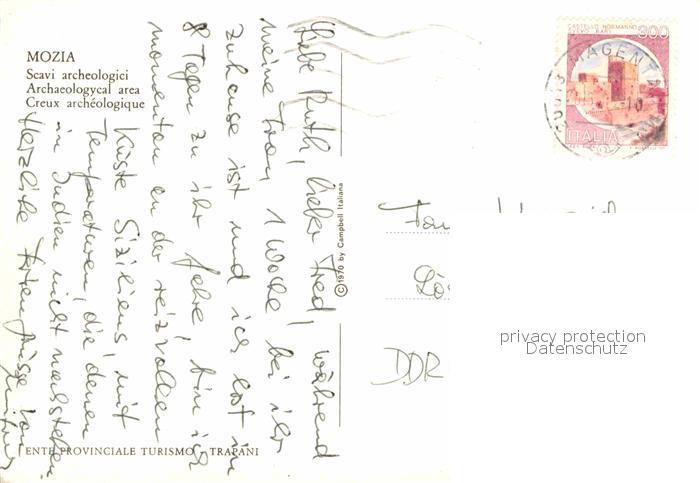 MOZIA
Scavi archeologici
Archaeologycal area
Creux archéologique
Liebe Ruth, lieber Fred, während
meine Frau 1 Woche bei ihr
zuhause ist und ich erst in
8 Tagen zu ihr fahre, bin ich
momentan an der reizvollen
Küste Siziliens, mit
Temperaturen, die denen
in Indien nicht nachstehen.
Herzliche Feriengrüsse von
© 1970 by Campbell Italiana
ENTE PROVINCIALE TURISMO - TRAPANI
CASTELLO NORMANNO
SVEVO BARI
300
ITALIA
MAGENTA
DDR
privacy protection
Datenschutz